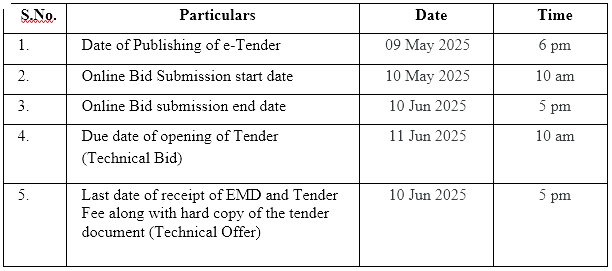 S.No. Particulars Date Time
1. Date of Publishing of e-Tender 09 May 2025 6 pm
2. Online Bid Submission start date 10 May 2025 10 am
3. Online Bid submission end date 10 Jun 2025 5 pm
4. Due date of opening of Tender 11 Jun 2025 10 am
(Technical Bid)
5. Last date of receipt of EMD and Tender 10 Jun 2025 5 pm
Fee along with hard copy of the tender
document (Technical Offer)